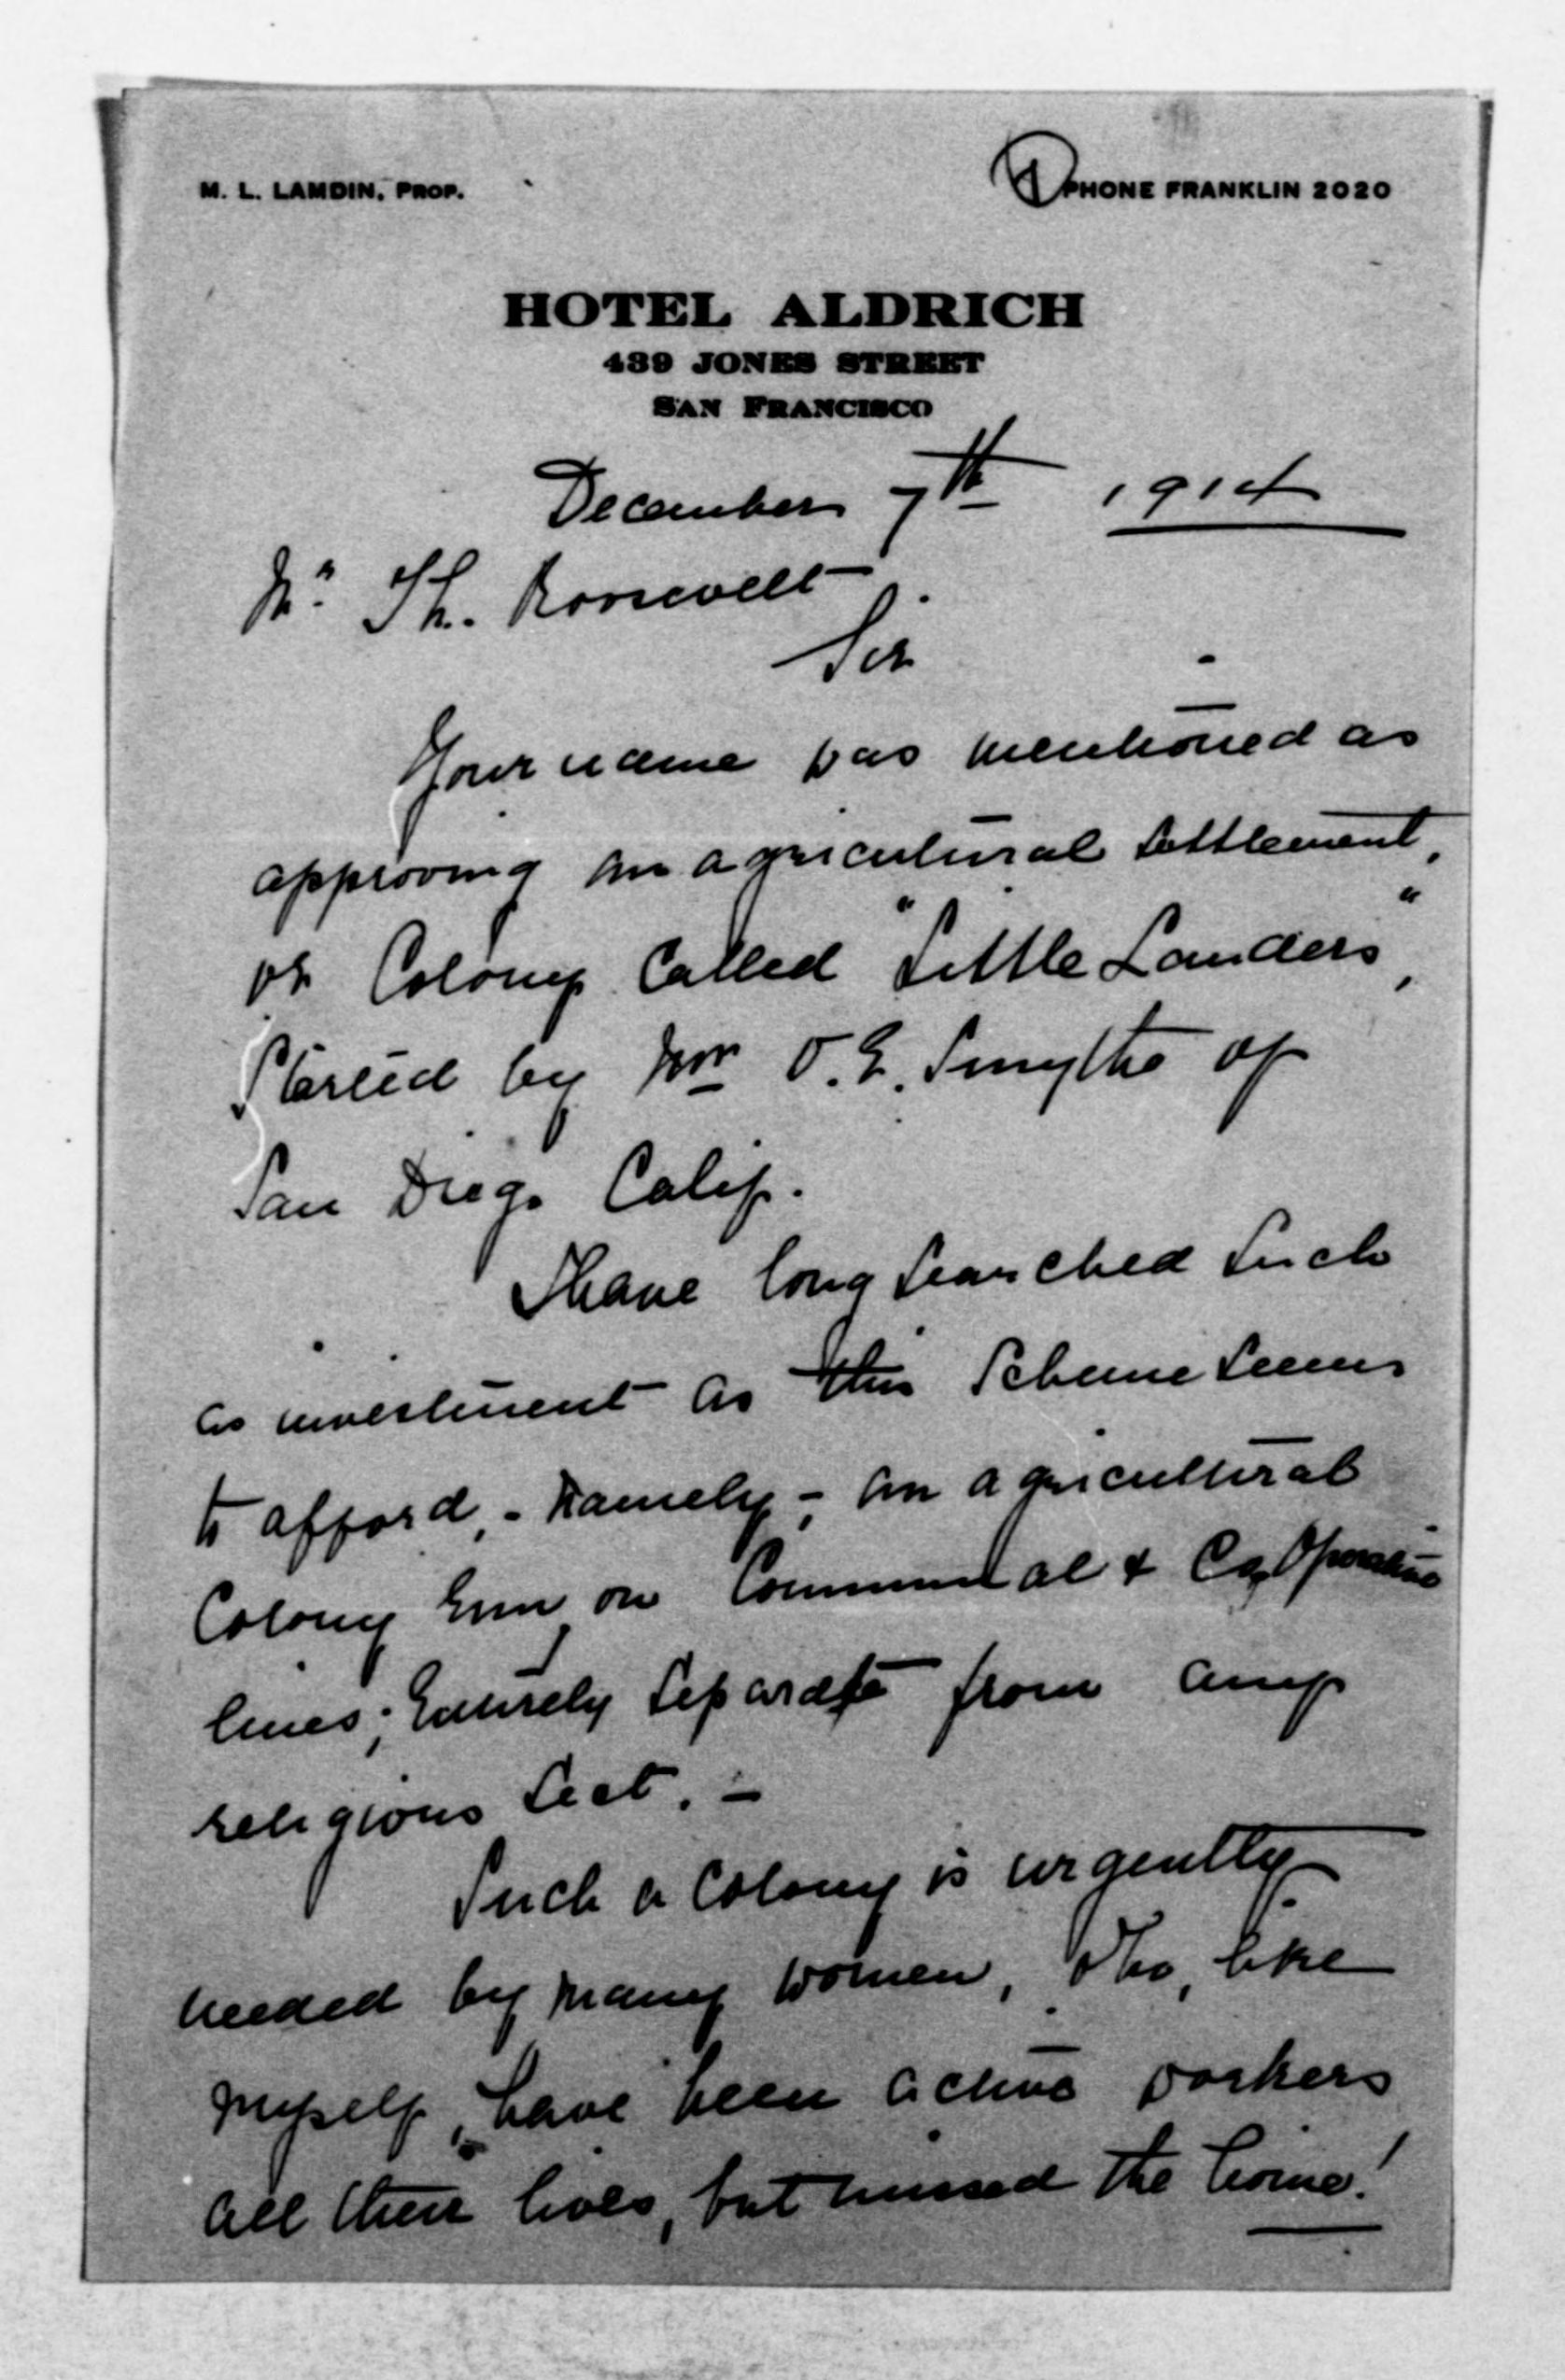 M. L. LAMDIN, PROP.
1
PHONE FRANKLIN 2020
HOTEL ALDRICH
439 JONES STREET
SAN FRANCISCO
December 7th 1914
Mr. Th. Roosevelt
Sir
Your name was mentioned as
approving an agricultural Settlement,
or Colony Called "Little Landers",
Started by O. E. Smythe of
San Diego Calif.
I have long searched such
as investment as this Scheme seems
to afford, - namely - an agricultural
Colony run on Communal & Co,Operative
lines; Entirely separate from any
religious Sect. -
Such a Colony is urgently
needed by many women, who, like
myself, have been active workers
all their lives, but missed the home!